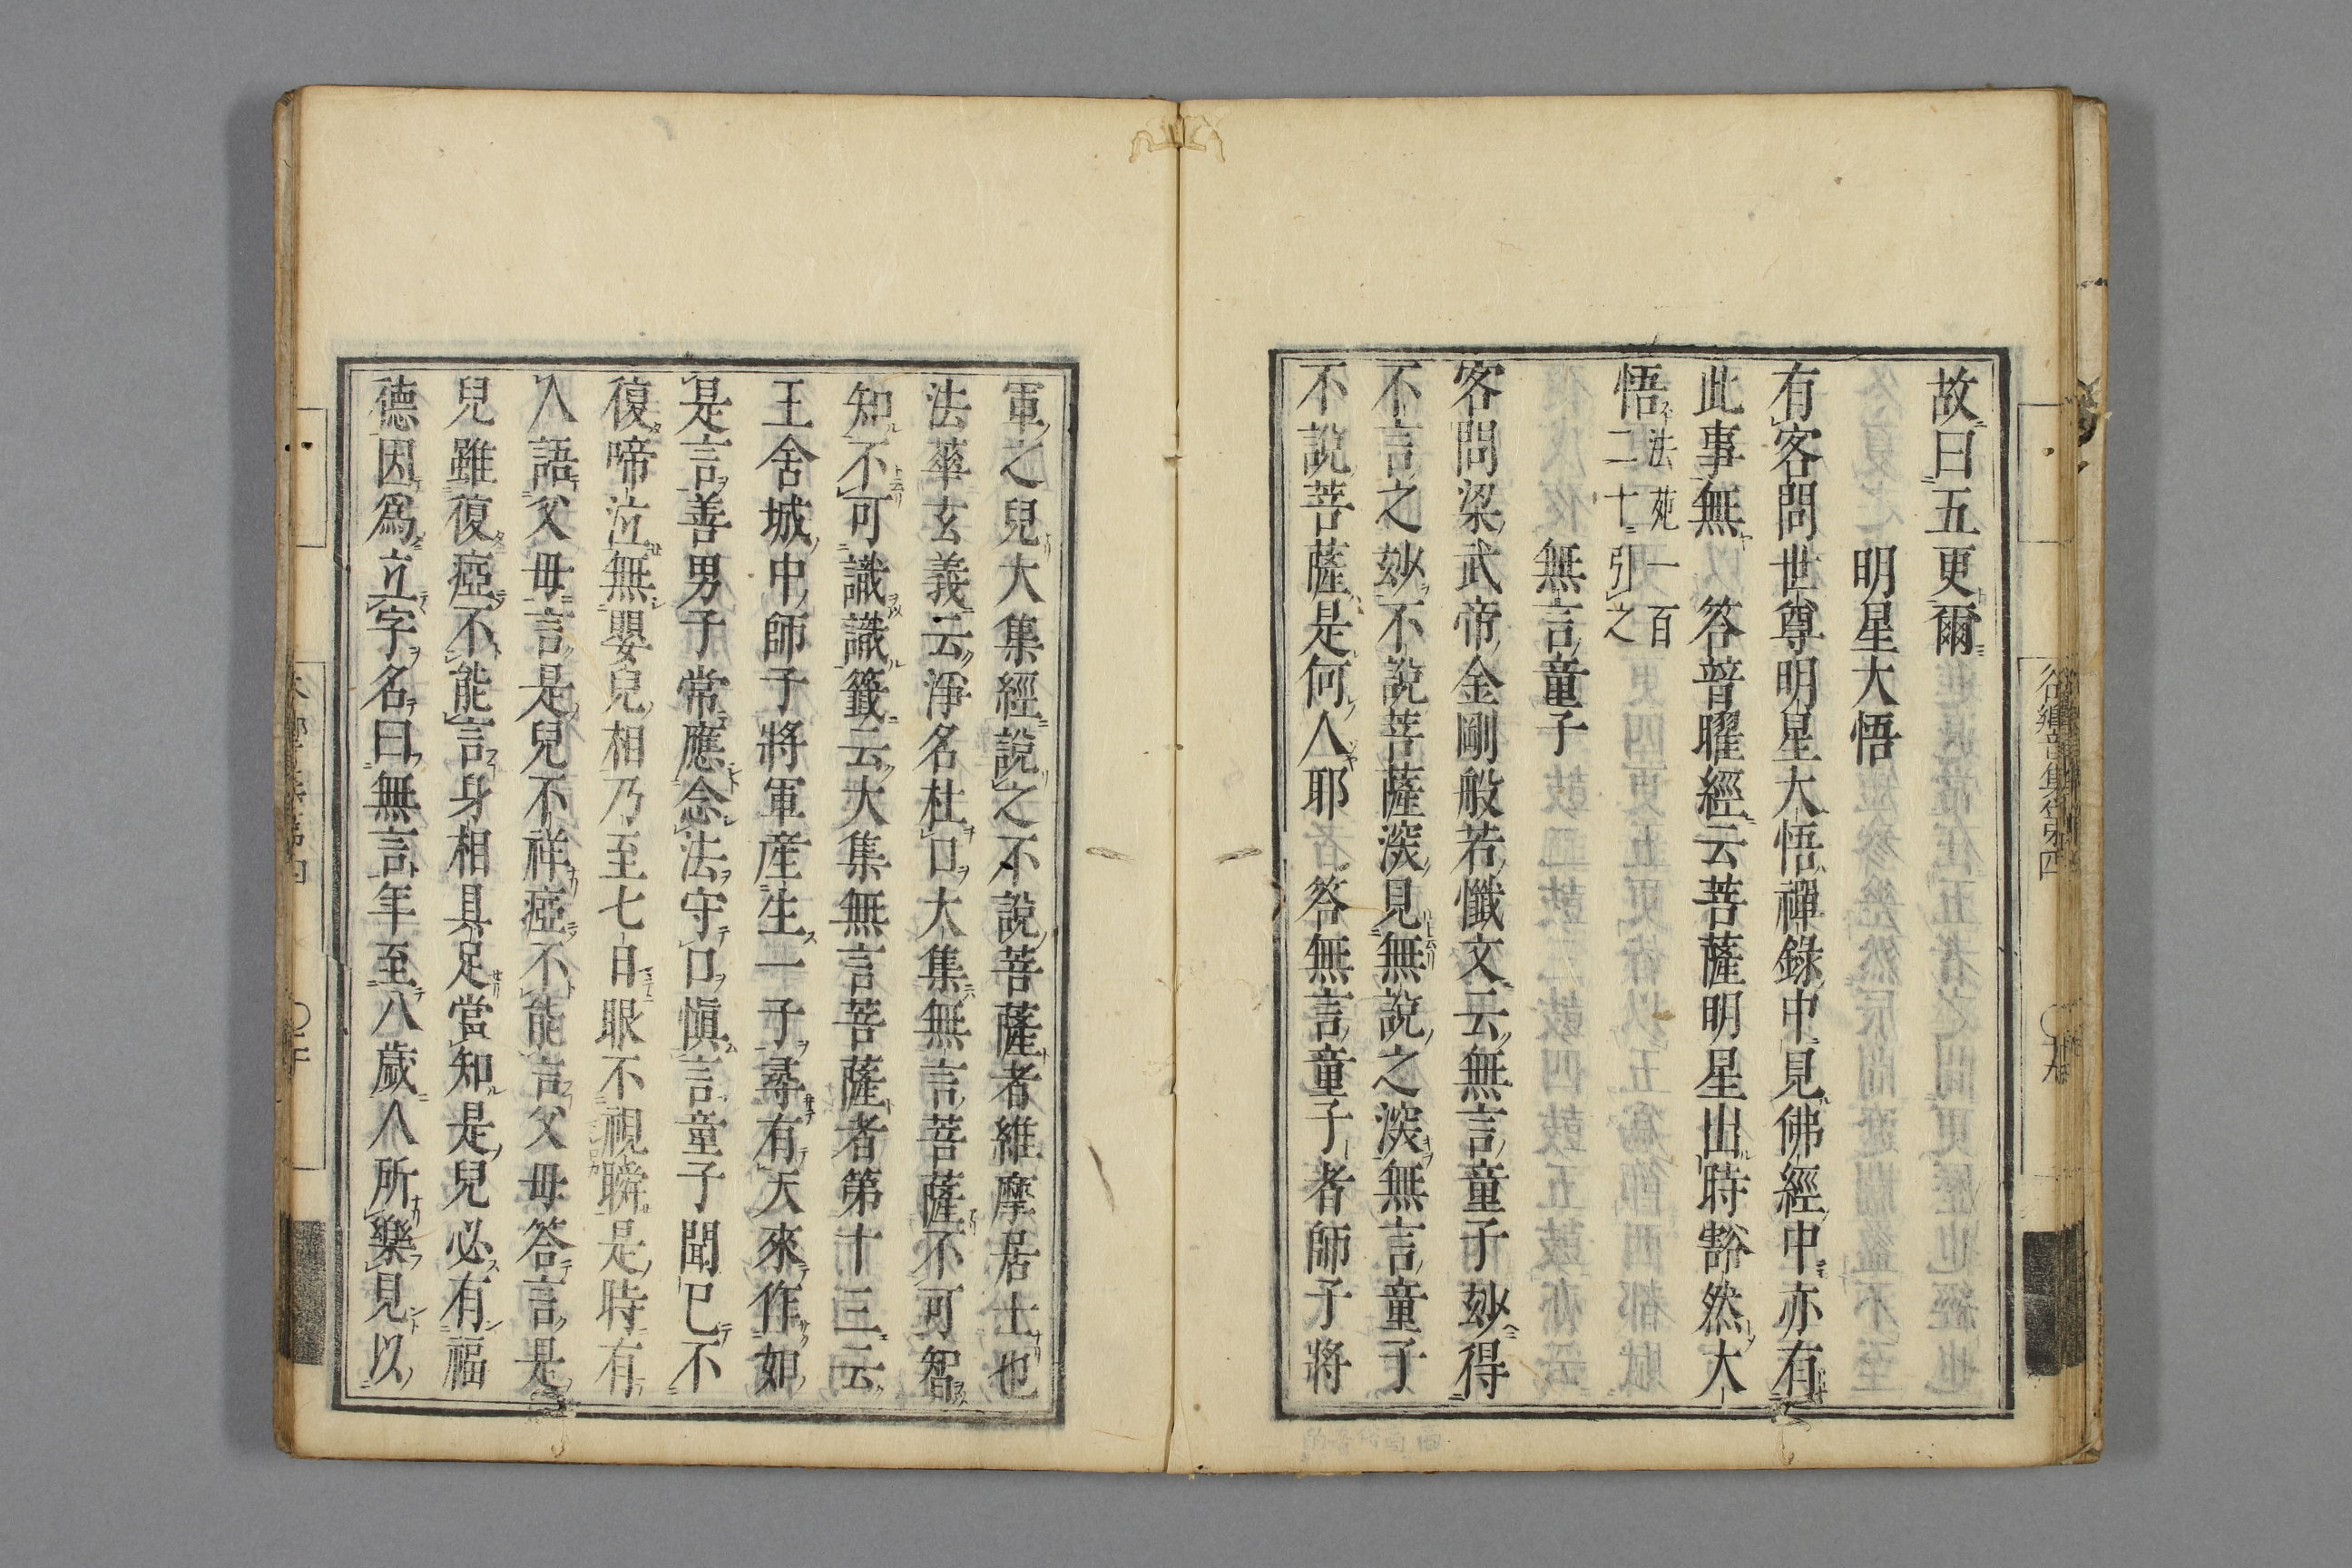 故曰五更爾
明星大悟
有客問世尊明星大悟禪錄中見佛經中亦有
此事無 答普曜經云菩薩明星出時豁然大
悟法苑一百
二十引之
無言童子
客問梁武帝金剛般若懺文云無言童子妙得
不言之妙不說菩薩深見無說之深無言童子
不說菩薩是何人耶 答無言童子者師子將
軍之兒大集經說之不說菩薩者維摩居士也
法華玄義云淨名杜口大集無言菩薩不可智
知不可識識籤云大集無言菩薩者第十三云
王舍城中師子將軍産生一子尋有天來作如
是言善男子常應念法守口愼言童子聞已不
復啼泣無嬰兒相乃至七日眼不視瞬是時有
人語父母言是兒不祥瘂不能言父母答言是
兒雖復瘂不能言身相具足當知是兒必有福
德因爲立字名曰無言年至八歲人所樂見以